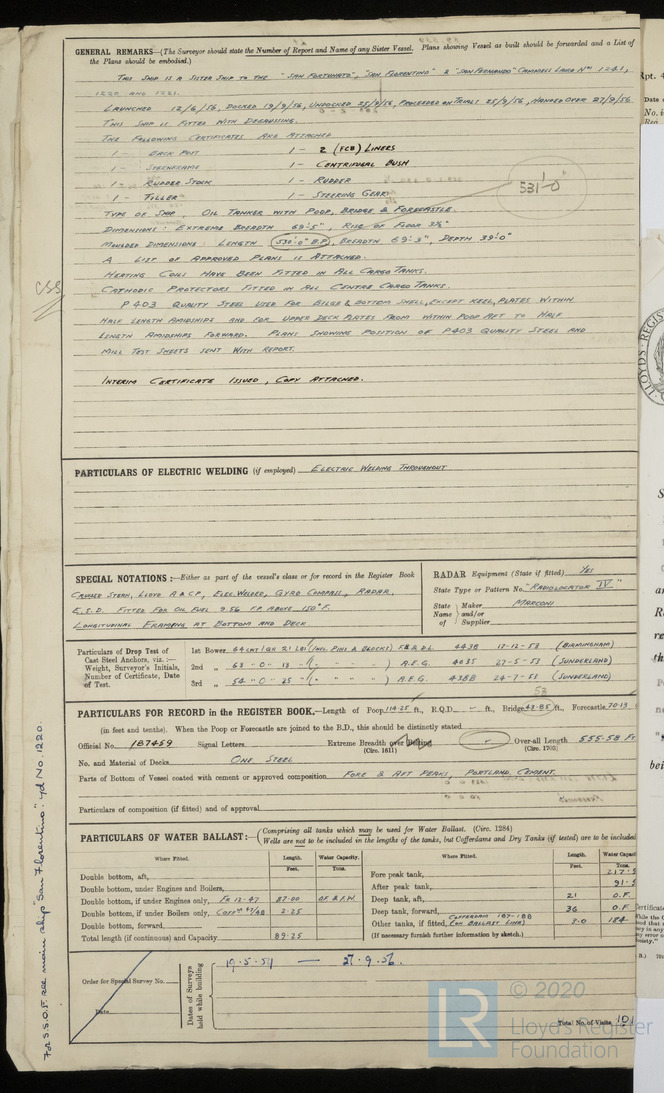 GENERAL REMARKS—(The Surveyor should state the Number of Report and Name of any Sister Vessel. Plans showing Vessel as built should be forwarded and a List of
the Plans should be embodied.)
THIS SHIP IS A SISTER SHIP TO THE "SAN FORTUNATO", "SAN FLORENTINO" & "SAN FERNANDO" CAMMELL LAIRD Nos 1241,
1220 AND 1221.
LAUNCHED 12/6/56, DOCKED 19/9/56, UNDOCKED 25/9/56, PROCEEDED ON TRIALS 25/9/56, HANDED OVER 27/9/56
THIS SHIP IS FITTED WITH DEGAUSSING.
THE FOLLOWING CERTIFICATES ARE ATTACHED
1 - BACK POST 1 - 2 (FCB) LINERS
1 - STERNFRAME 1 - CENTRIFUGAL BUSH
1 - RUDDER STOCK 1 - RUDDER
1 - TILLER 1 - STEERING GEAR
531'-0"
TYPE OF SHIP, OIL TANKER WITH POOP, BRIDGE & FORECASTLE.
DIMENSIONS: EXTREME BREADTH 69'-5", RISE OF FLOOR 3½"
MOULDED DIMENSIONS: LENGTH 530'-0" B.P, BREADTH 69'-3", DEPTH 39'-0"
A LIST OF APPROVED PLANS IS ATTACHED.
HEATING COILS HAVE BEEN FITTED IN ALL CARGO TANKS.
CATHODIC PROTECTORS FITTED IN ALL CENTRE CARGO TANKS.
P 403 QUALITY STEEL USED FOR BILGE & BOTTOM SHELL, EXCEPT KEEL, PLATES WITHIN
HALF LENGTH AMIDSHIPS AND FOR UPPER DECK PLATES FROM WITHIN POOP AFT TO HALF
LENGTH AMIDSHIPS FORWARD. PLANS SHOWING POSITION OF P403 QUALITY STEEL AND
MILL TEST SHEETS SENT WITH REPORT.
INTERIM CERTIFICATE ISSUED, COPY ATTACHED.
PARTICULARS OF ELECTRIC WELDING (if employed) ELECTRIC WELDING THROUGHOUT
SPECIAL NOTATIONS:—Either as part of the vessel's class or for record in the Register Book
CRUISER STERN, LLOYD A & CP, ELEC. WELDED, GYRO COMPASS, RADAR,
E.S.D. FITTED FOR OIL FUEL 9.56 F.P. ABOVE 150°F.
LONGITUDINAL FRAMING AT BOTTOM AND DECK
RADAR Equipment (State if fitted) YES
State Type or Pattern No. "RADIOLOCATOR IV"
State Name of Maker and/or Supplier MARCONI
Particulars of Drop Test of
Cast Steel Anchors, viz.:—
Weight, Surveyor's Initials,
Number of Certificate, Date
of Test.
1st Bower 4438 17-12-53 (BIRMINGHAM)
2nd " 63 - 0 - 18 A.F.G. 4035 27-5-53 (SUNDERLAND)
3rd " 54 " 0 " 25 A.F.G. 4388 24-7-53 (SUNDERLAND)
53
PARTICULARS FOR RECORD in the REGISTER BOOK.—Length of Poop 114.25 ft., R.Q.D. - ft., Bridge 43.85 ft., Forecastle 70.13
(in feet and tenths). When the Poop or Forecastle are joined to the B.D., this should be distinctly stated
Official No. 187459 Signal Letters Extreme Breadth over Belting (Circ. 1611) Over-all Length (Circ. 1703) 555.58 FT
No. and Material of Decks ONE STEEL
Parts of Bottom of Vessel coated with cement or approved composition FORE & AFT PEAKS, PORTLAND CEMENT.
Particulars of composition (if fitted) and of approval
PARTICULARS OF WATER BALLAST:— (Comprising all tanks which may be used for Water Ballast. (Circ. 1284)
Wells are not to be included in the lengths of the tanks, but Cofferdams and Dry Tanks (if tested) are to be included
Where Fitted. Length. Feet. Water Capacity. Tons. Where Fitted. Length. Feet. Water Capac Tons.
Double bottom, aft,
Double bottom, under Engines and Boilers,
Double bottom, if under Engines only, FR 12-47 87.00 O.F. & F.W.
Double bottom, if under Boilers only, COFFDM 47/48 2.25
Double bottom, forward,
Total length (if continuous) and Capacity 89.25
Fore peak tank, 217.5
After peak tank, 91.5
Deep tank, aft, 21 O.F.
Deep tank, forward, 36 O.F
Other tanks, if fitted, COFFERDAM 187-188 (ON BALLAST LINE) 3.0 184
(If necessary furnish further information by sketch.)
Order for Special Survey No.
Date
Dates of Surveys held while building
19.5.54 — 27.9.56.
Total No. of Visits 101
For S.S.O.F. see main ship "San Florentino": Yd No. 1220.
© 2020
LR
Lloyd's Register
Foundation
Rpt. 4
LLOYDS REGIS